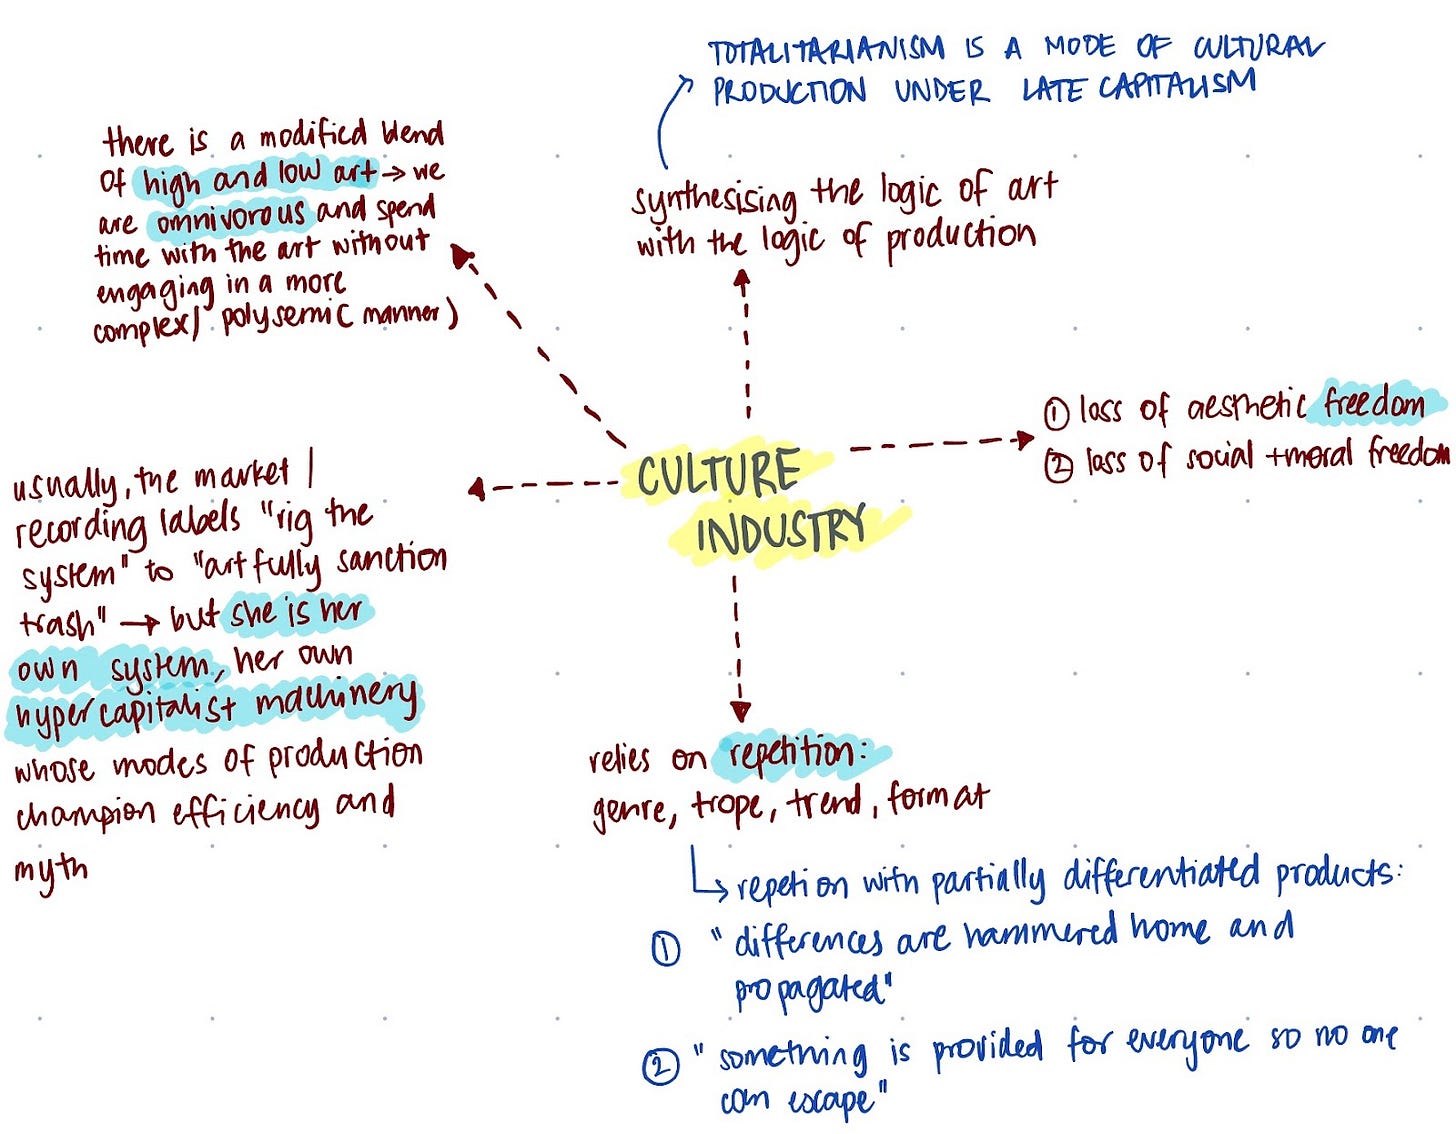 TOTALITARIANISM IS A MODE OF CULTURAL
PRODUCTION UNDER LATE CAPITALISM
there is a modified blend
of high and low art → we
are omnivorous and spend
time with the art without
engaging in a more
complex/ polysemic manner)
synthesising the logic of art
with the logic of production
① loss of aesthetic freedom
② loss of social + moral freedom
CULTURE
INDUSTRY
usually, the market /
recording labels "rig the
system" to "artfully sanction
trash" → but she is her
own system, her own
hypercapitalist machinery
whose modes of production
champion efficiency and
myth
relies on repetition:
genre, trope, trend, format
repetion with partially differentiated products:
① "differences are hammered home and
propagated"
② "something is provided for everyone so no one
can escape"